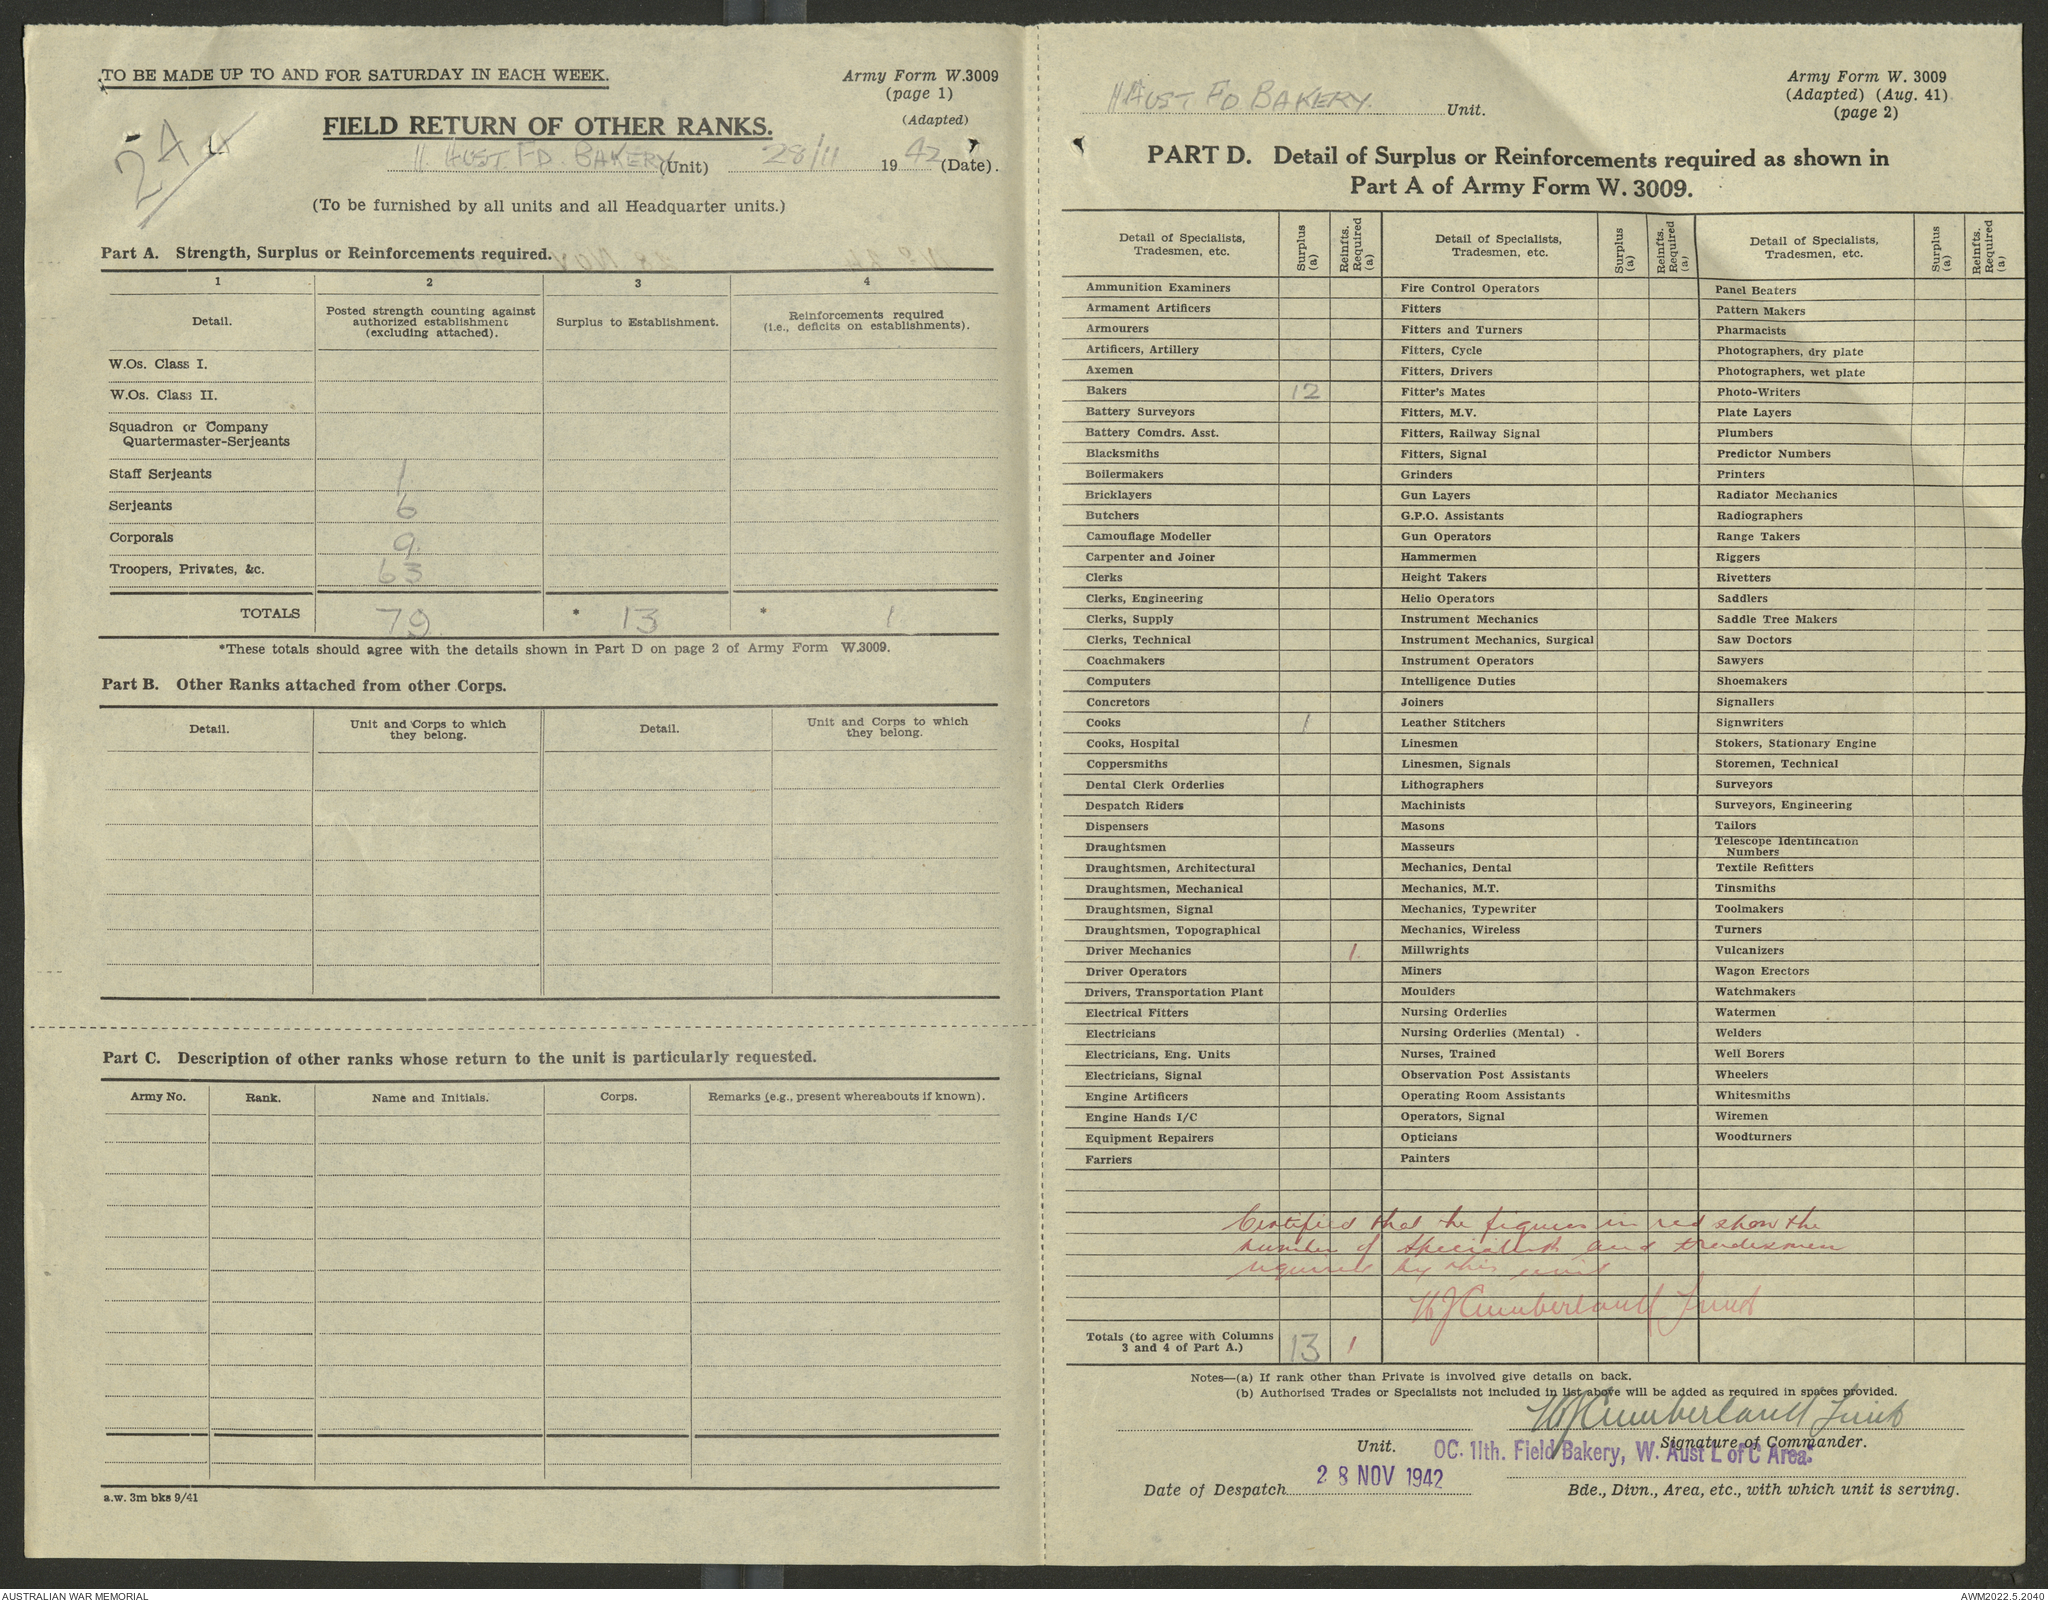 TO BE MADE UP TO AND FOR SATURDAY IN EACH WEEK.
Army Form W.3009
(page 1)
(Adapted)
2A
FIELD RETURN OF OTHER RANKS.
11 AUST. FD. BAKERY (Unit) 28/11 1942 (Date).
(To be furnished by all units and all Headquarter units.)
Part A. Strength, Surplus or Reinforcements required.
1 2 3 4
Detail. Posted strength counting against authorized establishment (excluding attached). Surplus to Establishment. Reinforcements required (i.e., deficits on establishments).
W.Os. Class I.
W.Os. Class II.
Squadron or Company
Quartermaster-Serjeants
Staff Serjeants 1
Serjeants 6
Corporals 9
Troopers, Privates, &c. 63
TOTALS 79 * 13 * 1
*These totals should agree with the details shown in Part D on page 2 of Army Form W.3009.
Part B. Other Ranks attached from other Corps.
Detail. Unit and Corps to which they belong. Detail. Unit and Corps to which they belong.
Part C. Description of other ranks whose return to the unit is particularly requested.
Army No. Rank. Name and Initials. Corps. Remarks (e.g., present whereabouts if known).
a.w. 3m bks 9/41
11 AUST FD BAKERY. Unit.
Army Form W. 3009
(Adapted) (Aug. 41)
(page 2)
PART D. Detail of Surplus or Reinforcements required as shown in
Part A of Army Form W. 3009.
Detail of Specialists, Tradesmen, etc. Surplus (a) Reinfts. Required (a) Detail of Specialists, Tradesmen, etc. Surplus (a) Reinfts. Required (a) Detail of Specialists, Tradesmen, etc. Surplus (a) Reinfts. Required (a)
Ammunition Examiners Fire Control Operators Panel Beaters
Armament Artificers Fitters Pattern Makers
Armourers Fitters and Turners Pharmacists
Artificers, Artillery Fitters, Cycle Photographers, dry plate
Axemen Fitters, Drivers Photographers, wet plate
Bakers 12 Fitter's Mates Photo-Writers
Battery Surveyors Fitters, M.V. Plate Layers
Battery Comdrs. Asst. Fitters, Railway Signal Plumbers
Blacksmiths Fitters, Signal Predictor Numbers
Boilermakers Grinders Printers
Bricklayers Gun Layers Radiator Mechanics
Butchers G.P.O. Assistants Radiographers
Camouflage Modeller Gun Operators Range Takers
Carpenter and Joiner Hammermen Riggers
Clerks Height Takers Rivetters
Clerks, Engineering Helio Operators Saddlers
Clerks, Supply Instrument Mechanics Saddle Tree Makers
Clerks, Technical Instrument Mechanics, Surgical Saw Doctors
Coachmakers Instrument Operators Sawyers
Computers Intelligence Duties Shoemakers
Concretors Joiners Signallers
Cooks 1 Leather Stitchers Signwriters
Cooks, Hospital Linesmen Stokers, Stationary Engine
Coppersmiths Linesmen, Signals Storemen, Technical
Dental Clerk Orderlies Lithographers Surveyors
Despatch Riders Machinists Surveyors, Engineering
Dispensers Masons Tailors
Draughtsmen Masseurs Telescope Identification Numbers
Draughtsmen, Architectural Mechanics, Dental Textile Refitters
Draughtsmen, Mechanical Mechanics, M.T. Tinsmiths
Draughtsmen, Signal Mechanics, Typewriter Toolmakers
Draughtsmen, Topographical Mechanics, Wireless Turners
Driver Mechanics 1. Millwrights Vulcanizers
Driver Operators Miners Wagon Erectors
Drivers, Transportation Plant Moulders Watchmakers
Electrical Fitters Nursing Orderlies Watermen
Electricians Nursing Orderlies (Mental) Welders
Electricians, Eng. Units Nurses, Trained Well Borers
Electricians, Signal Observation Post Assistants Wheelers
Engine Artificers Operating Room Assistants Whitesmiths
Engine Hands I/C Operators, Signal Wiremen
Equipment Repairers Opticians Woodturners
Farriers Painters
Certified that the figures in red show the
number of specialists and tradesmen
required by this unit
W J Cumberland Lieut
Totals (to agree with Columns 3 and 4 of Part A.) 13 1
Notes—(a) If rank other than Private is involved give details on back.
(b) Authorised Trades or Specialists not included in list above will be added as required in spaces provided.
W J Cumberland Lieut
Unit. Signature of Commander.
OC. 11th. Field Bakery, W. Aust L of C Area.
Date of Despatch 28 NOV 1942
Bde., Divn., Area, etc., with which unit is serving.
AUSTRALIAN WAR MEMORIAL
AWM2022.5.2040